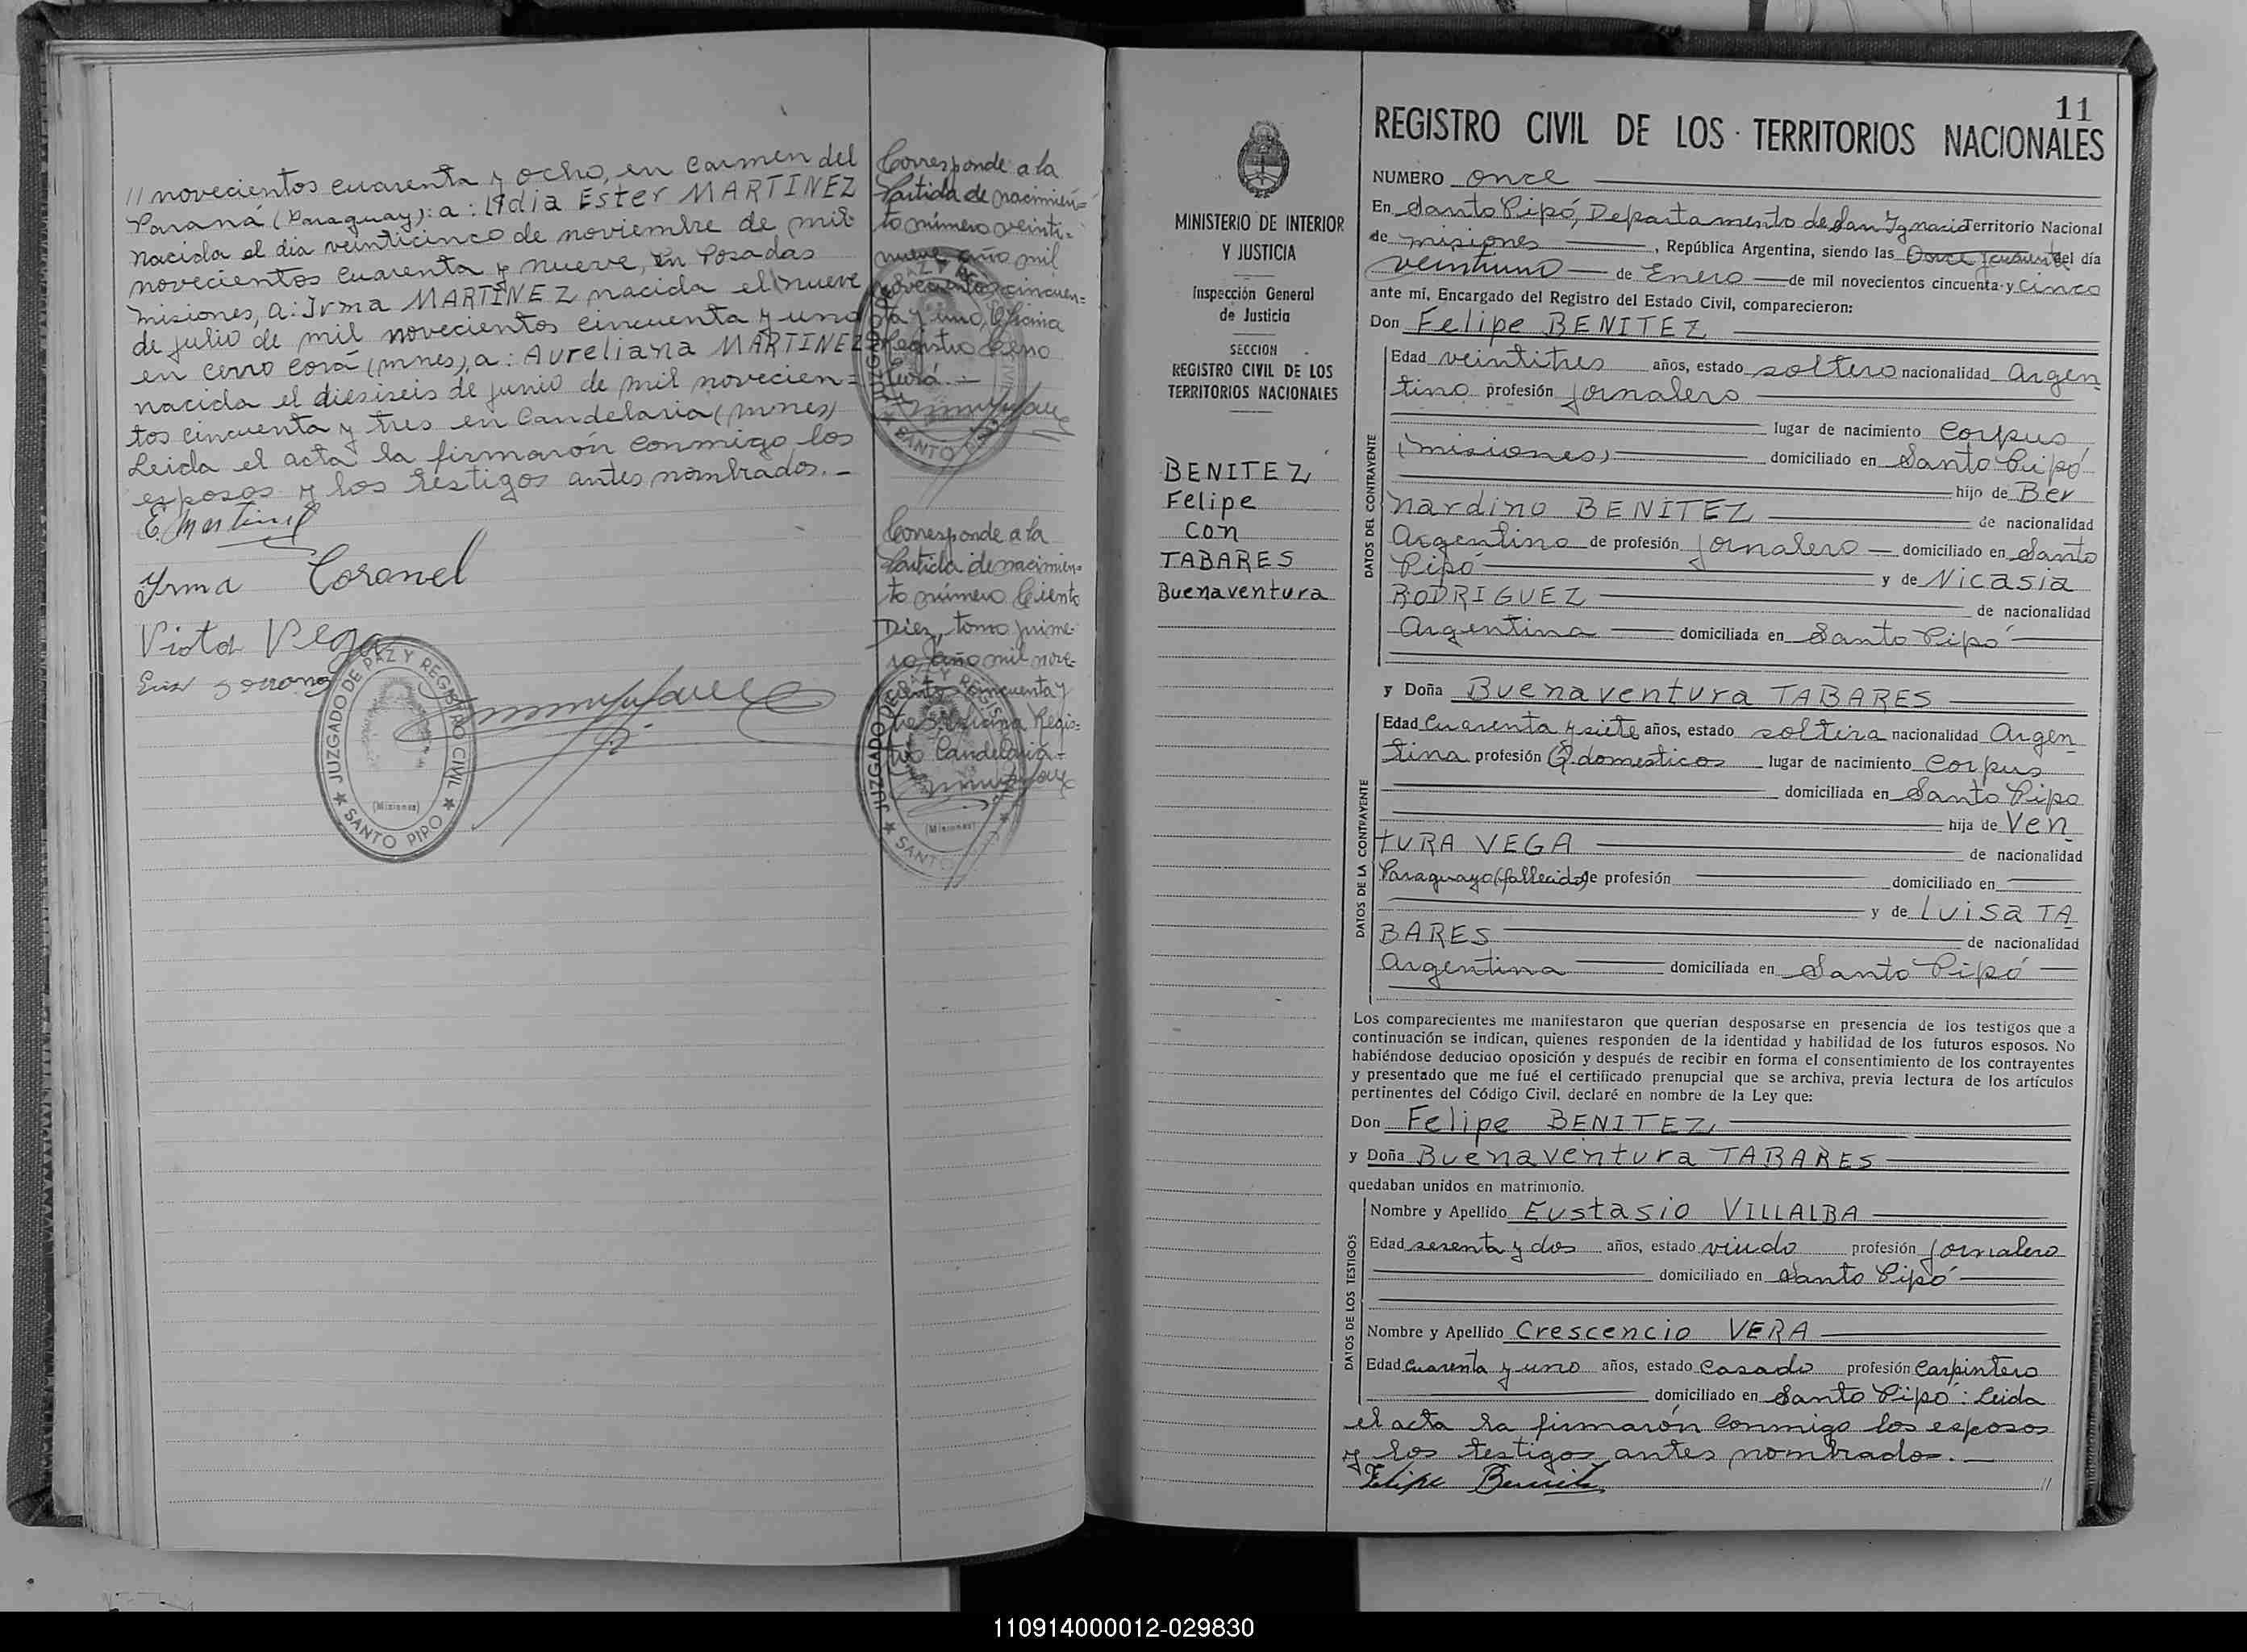 // novecientos cuarenta y ocho, en Carmen del
Paraná (Paraguay): a: Lidia Ester MARTINEZ
nacida el día veinticinco de noviembre de mil
novecientos cuarenta y nueve, en Posadas
Misiones, a: Irma MARTINEZ nacida el nueve
de julio de mil novecientos cincuenta y uno
en cerro corá (mnes), a: Aureliana MARTINEZ
nacida el dieciseis de junio de mil novecien=
tos cincuenta y tres en Candelaria (mnes)
Leida el acta la firmarón conmigo los
esposos y los testigos antes nombrados. —
E. Martinez
Yrma Coronel
Victor Vega
JUZGADO DE PAZ Y REGISTRO CIVIL
(Misiones)
★ SANTO PIPO ★
Corresponde a la
Partida de nacimien=
to número veinti=
nueve año mil
novecientos cincuen=
ta y uno, Oficina
Registro Cerro
Corá. —
Corresponde a la
Partida de nacimien=
to número Ciento
Diez, tomo prime-
ro, año mil nove-
cientos cincuenta y
tres, oficina Regis=
tro Candelaria -
JUZGADO DE PAZ Y REGISTRO CIVIL
(Misiones)
SANTO
MINISTERIO DE INTERIOR
Y JUSTICIA
Inspección General
de Justicia
SECCION
REGISTRO CIVIL DE LOS
TERRITORIOS NACIONALES
BENITEZ
Felipe
Con
TABARES
Buenaventura
11
REGISTRO CIVIL DE LOS TERRITORIOS NACIONALES
NUMERO once
En Santo Pipó, Departamento de San Ignacio Territorio Nacional
de misiones, República Argentina, siendo las Once y cuarenta del día
veintiuno de Enero de mil novecientos cincuenta y cinco
ante mí, Encargado del Registro del Estado Civil, comparecieron:
Don Felipe BENITEZ
DATOS DEL CONTRAYENTE
Edad veintitres años, estado soltero nacionalidad Argen
tino profesión jornalero
lugar de nacimiento Corpus
(misiones) domiciliado en Santo Pipó
hijo de Ber
nardino BENITEZ de nacionalidad
Argentino de profesión jornalero domiciliado en Santo
Pipó y de Nicasia
RODRIGUEZ de nacionalidad
Argentina domiciliada en Santo Pipó
y Doña Buenaventura TABARES
DATOS DE LA CONTRAYENTE
Edad Cuarenta y siete años, estado soltera nacionalidad Argen
tina profesión Q. domesticos lugar de nacimiento Corpus
domiciliada en Santo Pipo
hija de Ven
TURA VEGA de nacionalidad
Paraguayo (fallecido) de profesión domiciliado en
y de Luisa TA
BARES de nacionalidad
Argentina domiciliada en Santo Pipó
Los comparecientes me manifestaron que querían desposarse en presencia de los testigos que a
continuación se indican, quienes responden de la identidad y habilidad de los futuros esposos. No
habiéndose deducido oposición y después de recibir en forma el consentimiento de los contrayentes
y presentado que me fué el certificado prenupcial que se archiva, previa lectura de los artículos
pertinentes del Código Civil, declaré en nombre de la Ley que:
Don Felipe BENITEZ
y Doña Buenaventura TABARES
quedaban unidos en matrimonio.
DATOS DE LOS TESTIGOS
Nombre y Apellido Eustasio VILLALBA
Edad sesenta y dos años, estado viudo profesión jornalero
domiciliado en Santo Pipó
Nombre y Apellido Crescencio VERA
Edad cuarenta y uno años, estado Casado profesión Carpintero
domiciliado en Santo Pipó: Leida
el acta la firmarón conmigo los esposos
y los testigos antes nombrados. —
Felipe Benitez
//
110914000012-029830